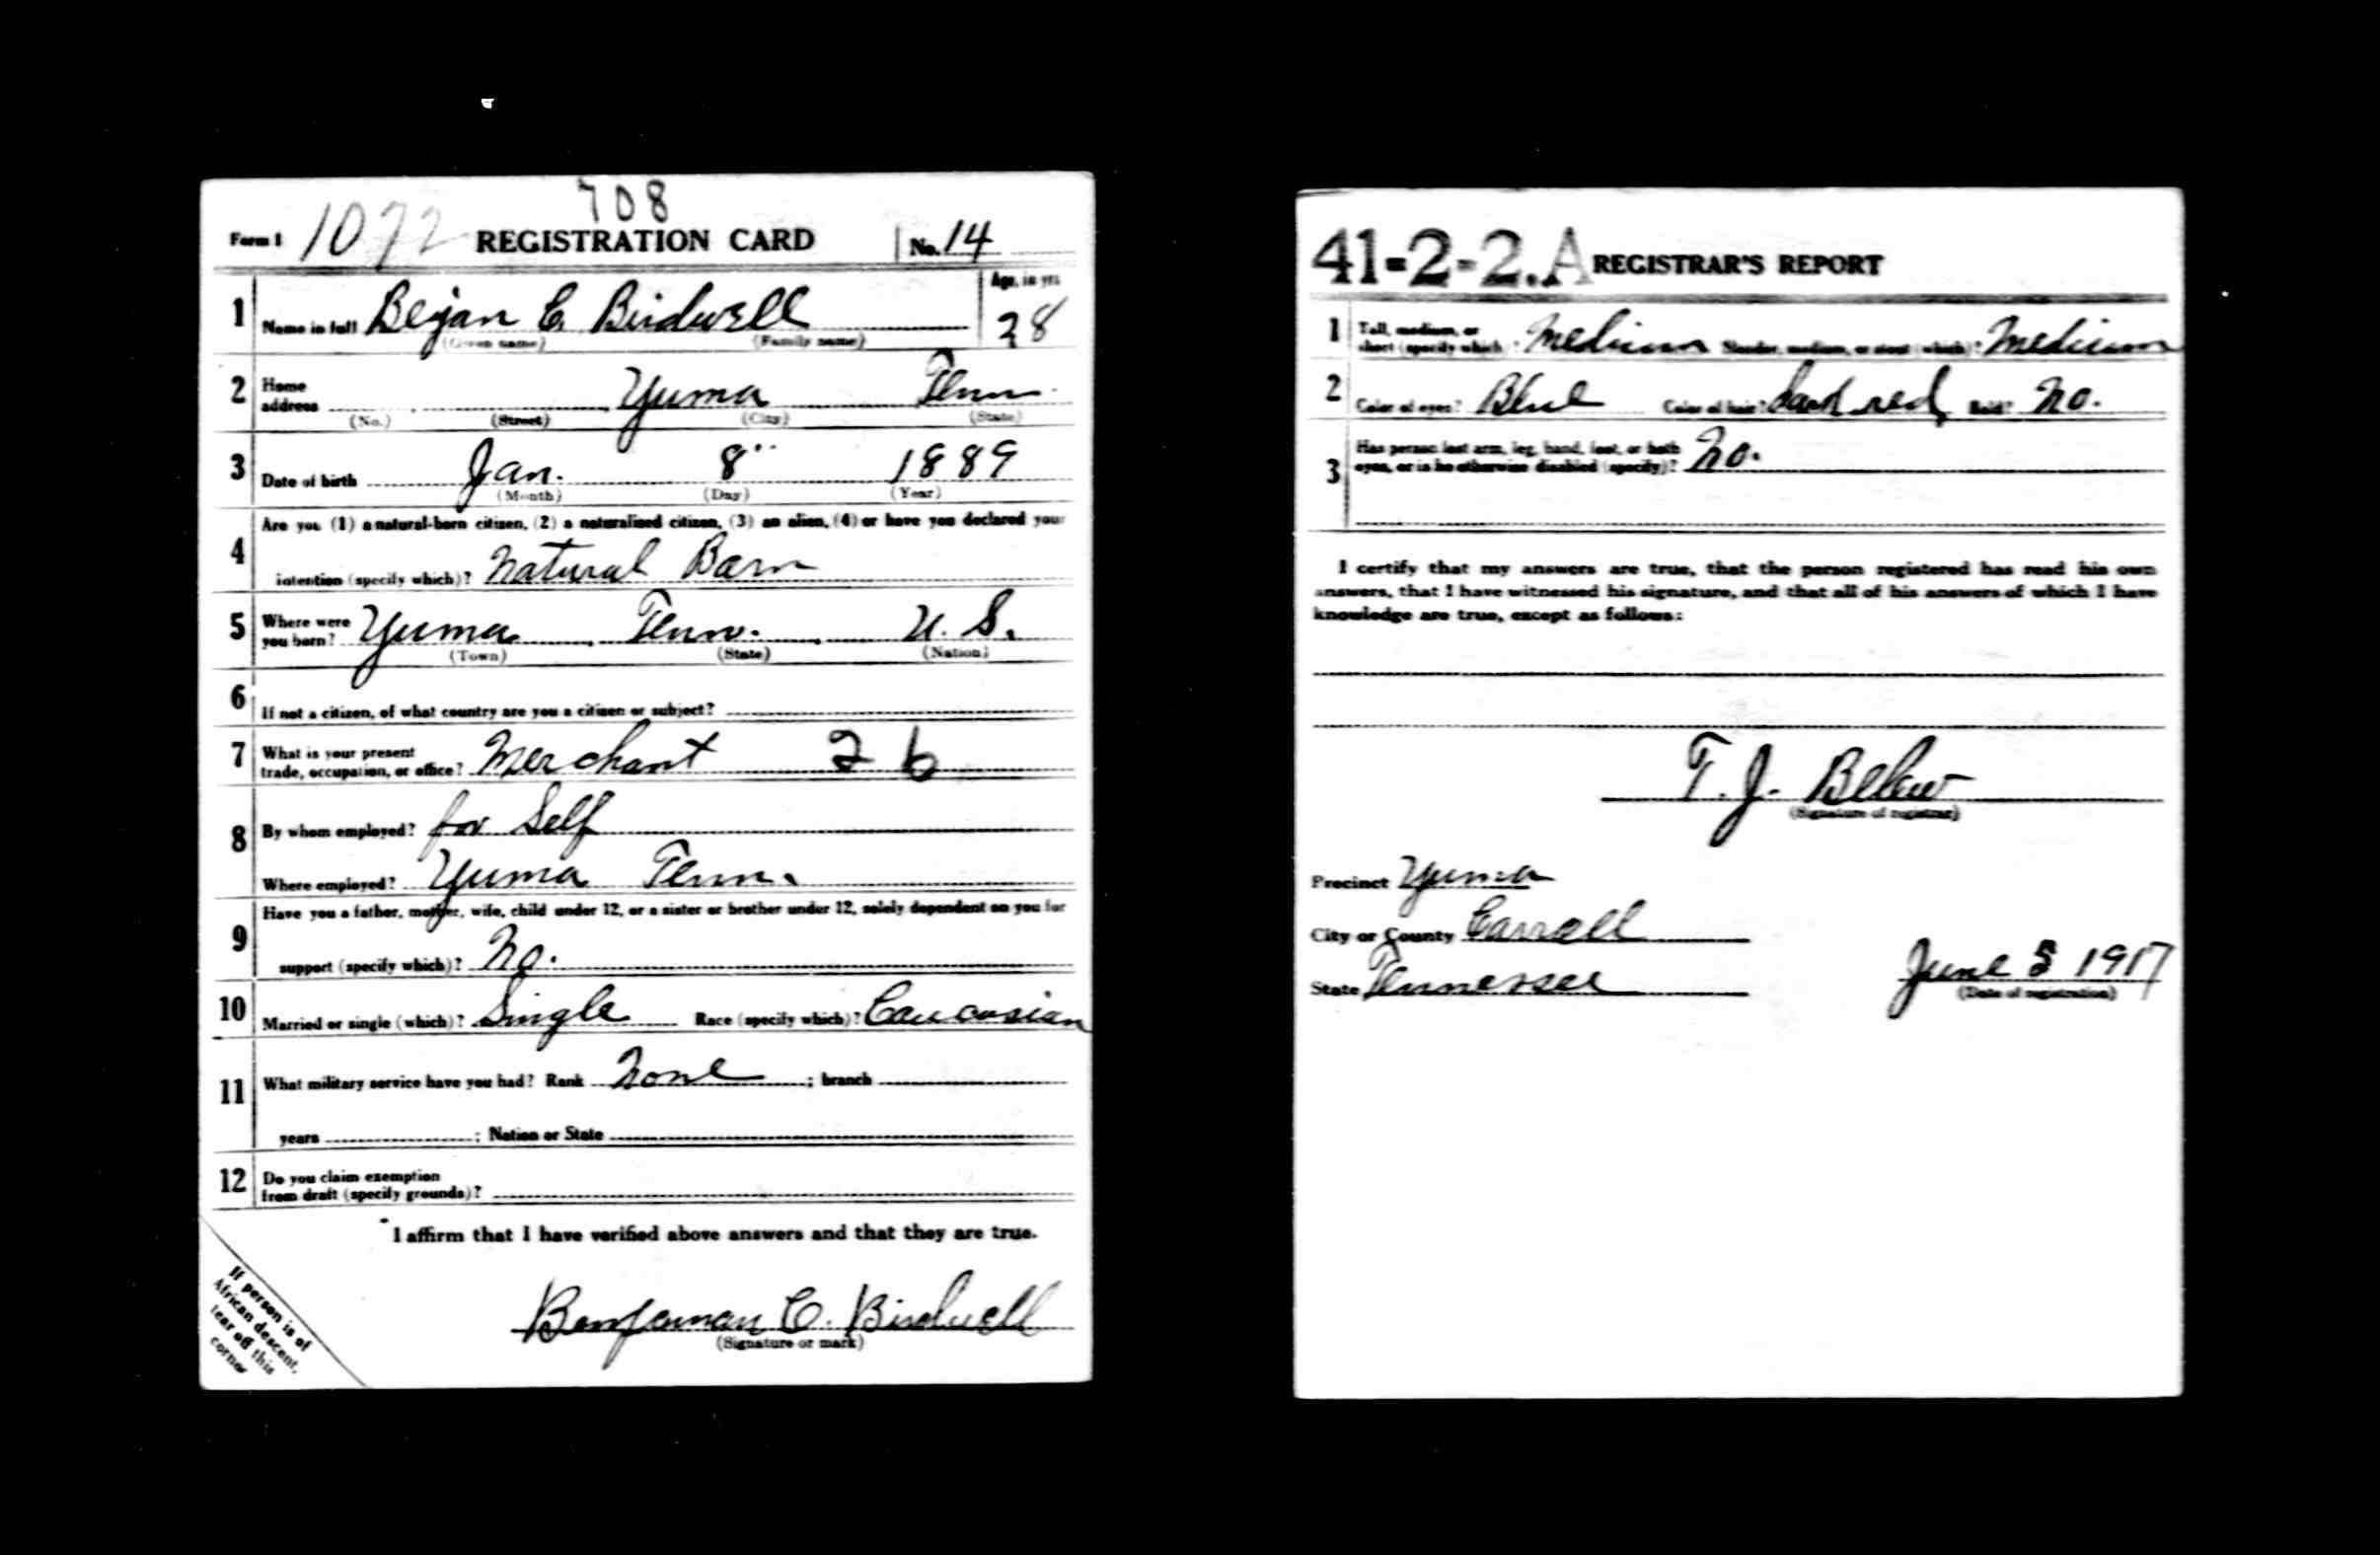 708
Form 1 1072 REGISTRATION CARD No. 14
1 Name in full Bejan C. Birdwell Age, in yrs 28
(Given name) (Family name)
2 Home address Yuma Tenn.
(No.) (Street) (City) (State)
3 Date of birth Jan. 8" 1889
(Month) (Day) (Year)
4 Are you (1) a natural-born citizen, (2) a naturalized citizen, (3) an alien, (4) or have you declared your
intention (specify which)? Natural Born
5 Where were you born? Yuma, Tenn., U. S.
(Town) (State) (Nation)
6 If not a citizen, of what country are you a citizen or subject?
7 What is your present trade, occupation, or office? Merchant 26
8 By whom employed? for Self
Where employed? Yuma Tenn.
9 Have you a father, mother, wife, child under 12, or a sister or brother under 12, solely dependent on you for
support (specify which)? No.
10 Married or single (which)? Single Race (specify which)? Caucasian
11 What military service have you had? Rank None ; branch
years ; Nation or State
12 Do you claim exemption from draft (specify grounds)?
I affirm that I have verified above answers and that they are true.
Benjaman C. Birdwell
(Signature or mark)
If person is of
African descent,
tear off this
corner
41-2-2.A REGISTRAR'S REPORT
1 Tall, medium, or short (specify which)? Medium Slender, medium, or stout (which)? Medium
2 Color of eyes? Blue Color of hair? red Bald? No.
3 Has person lost arm, leg, hand, foot, or both
eyes, or is he otherwise disabled (specify)? No.
I certify that my answers are true, that the person registered has read his own
answers, that I have witnessed his signature, and that all of his answers of which I have
knowledge are true, except as follows:
T. J. Belew
(Signature of registrar)
Precinct Yuma
City or County Carroll
State Tennessee June 5 1917
(Date of registration)